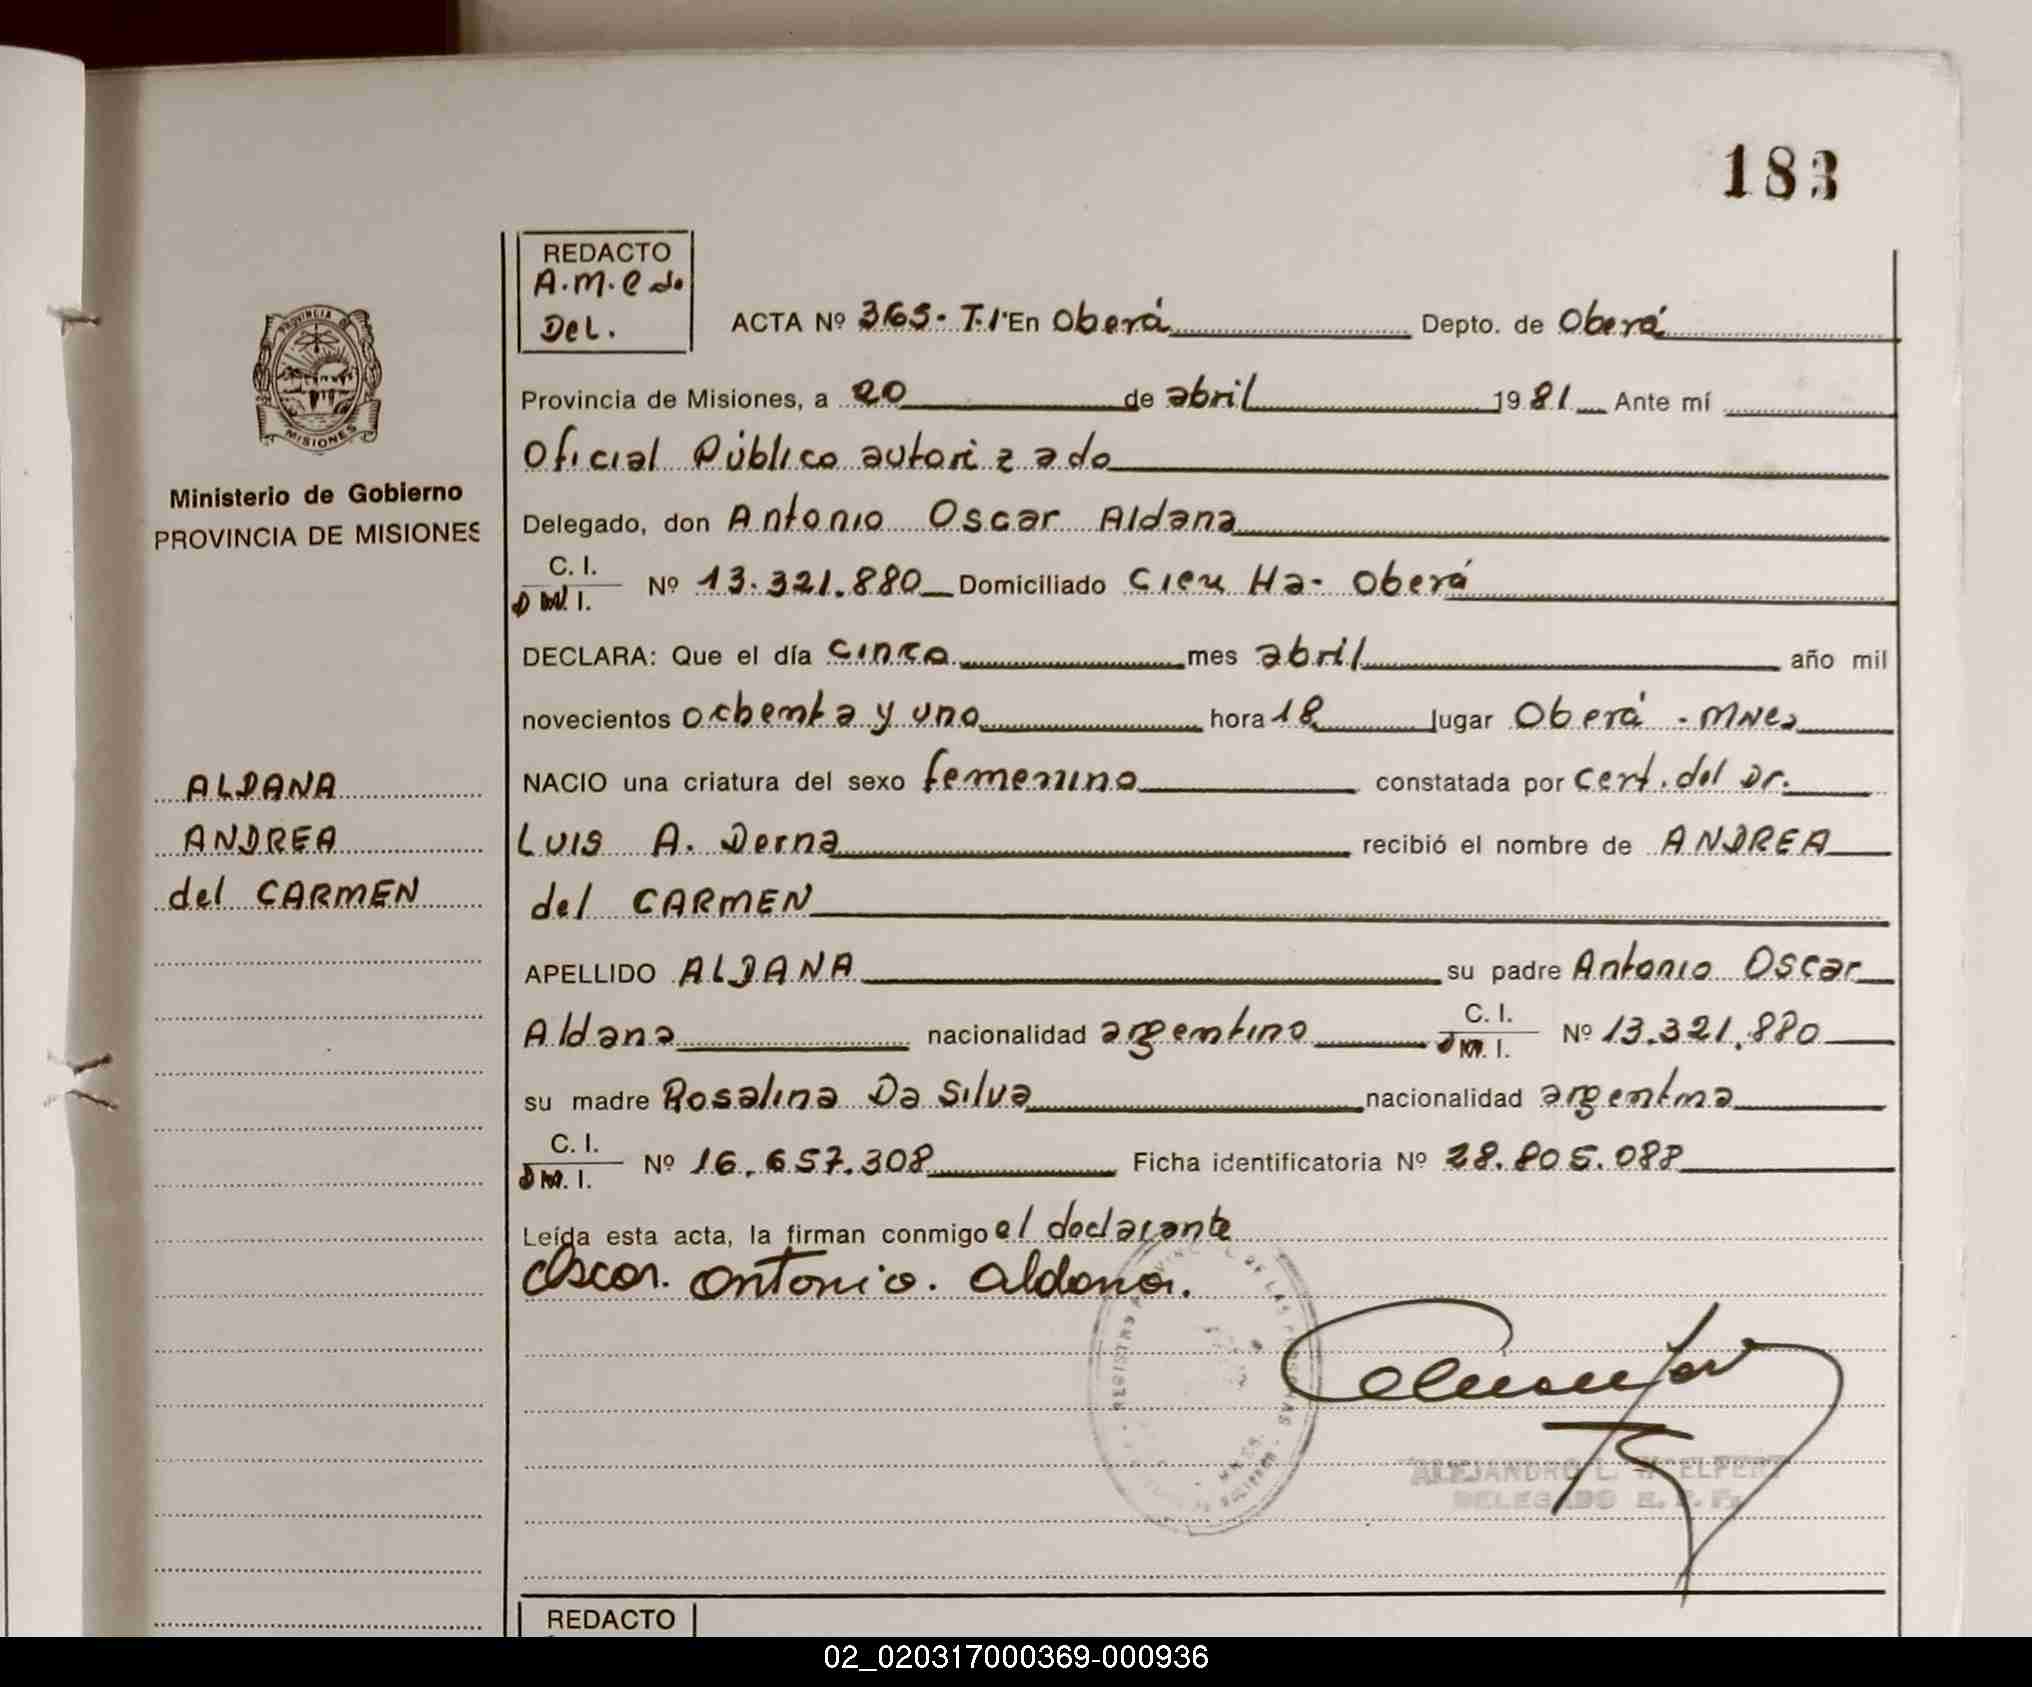 183
REDACTO
A.M.C do
Del.
ACTA Nº 365- T.1º En Oberá Depto. de Oberá
Provincia de Misiones, a 20 de abril 1981 Ante mí
Oficial Público autorizado
Delegado, don Antonio Oscar Aldana
C. I.
D M. I. Nº 13.321.880 Domiciliado Cien Ha- Oberá
DECLARA: Que el día cinco mes abril año mil
novecientos ochenta y uno hora 18 lugar Oberá - Mnes
NACIO una criatura del sexo femenino constatada por cert. del Dr.
Luis A. Derna recibió el nombre de ANDREA
del CARMEN
APELLIDO ALDANA su padre Antonio Oscar
Aldana nacionalidad argentino C. I.
D M. I. Nº 13.321.880
su madre Rosalina Da Silva nacionalidad argentina
C. I.
D M. I. Nº 16.657.308 Ficha identificatoria Nº 28.805.088
Leída esta acta, la firman conmigo el declarante
Oscar Antonio Aldana.
ALEJANDRO L.
DELEGADO R. P. P.
PROVINCIA DE
MISIONES
Ministerio de Gobierno
PROVINCIA DE MISIONES
ALDANA
ANDREA
del CARMEN
REDACTO
02_020317000369-000936